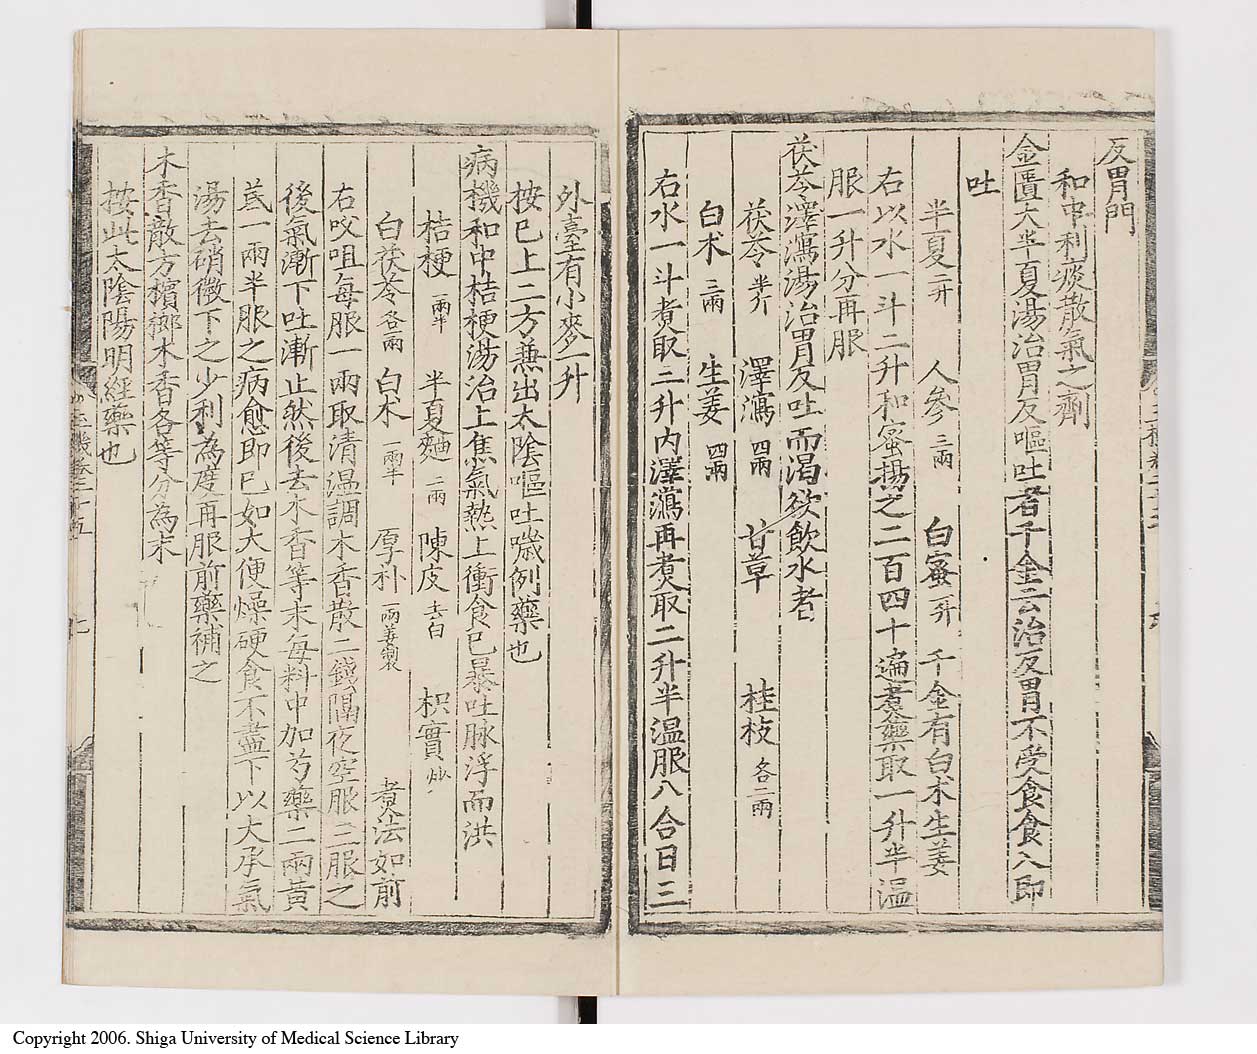 反胃門
和中利痰散氣之劑
金匱大半夏湯治胃反嘔吐者千金云治反胃不受食食入即
吐
半夏二升 人參三兩 白蜜一升 千金有白术生姜
右以水一斗二升和蜜揚之二百四十遍煮藥取一升半温
服一升分再服
茯苓澤瀉湯治胃反吐而渴欲飲水者
茯苓半斤 澤瀉四兩 甘草 桂枝各二兩
白术三兩 生姜四兩
右水一斗煮取三升内澤瀉再煮取二升半温服八合日三
外臺有小麥一升
按已上二方兼出太陰嘔吐噦例藥也
病機和中桔梗湯治上焦氣熱上衝食已暴吐脉浮而洪
桔梗一兩半 半夏麯二兩 陳皮去白 枳實炒
白茯苓各一兩 白术一兩半 厚朴一兩姜製 煮法如前
右㕮咀每服一兩取清温調木香散二錢隔夜空服三服之
後氣漸下吐漸止然後去木香等末每料中加芍藥二兩黃
芪一兩半服之病愈即已如大便燥硬食不盡下以大承氣
湯去硝微下之少利為度再服前藥補之
木香散方檳榔木香各等分為末
按此太陰陽明經藥也
Copyright 2006. Shiga University of Medical Science Library